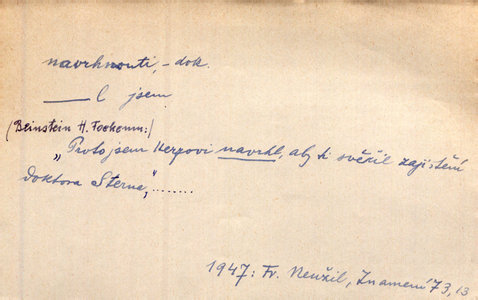 navrhnouti, - dok.
——— l jsem
(Beinstein H. :)
„Proto jsem Herzovi navrhl, aby ti svěřil zajištění
doktora Sterna,“........
1947: Fr. Neužil, Znamení 73, 13